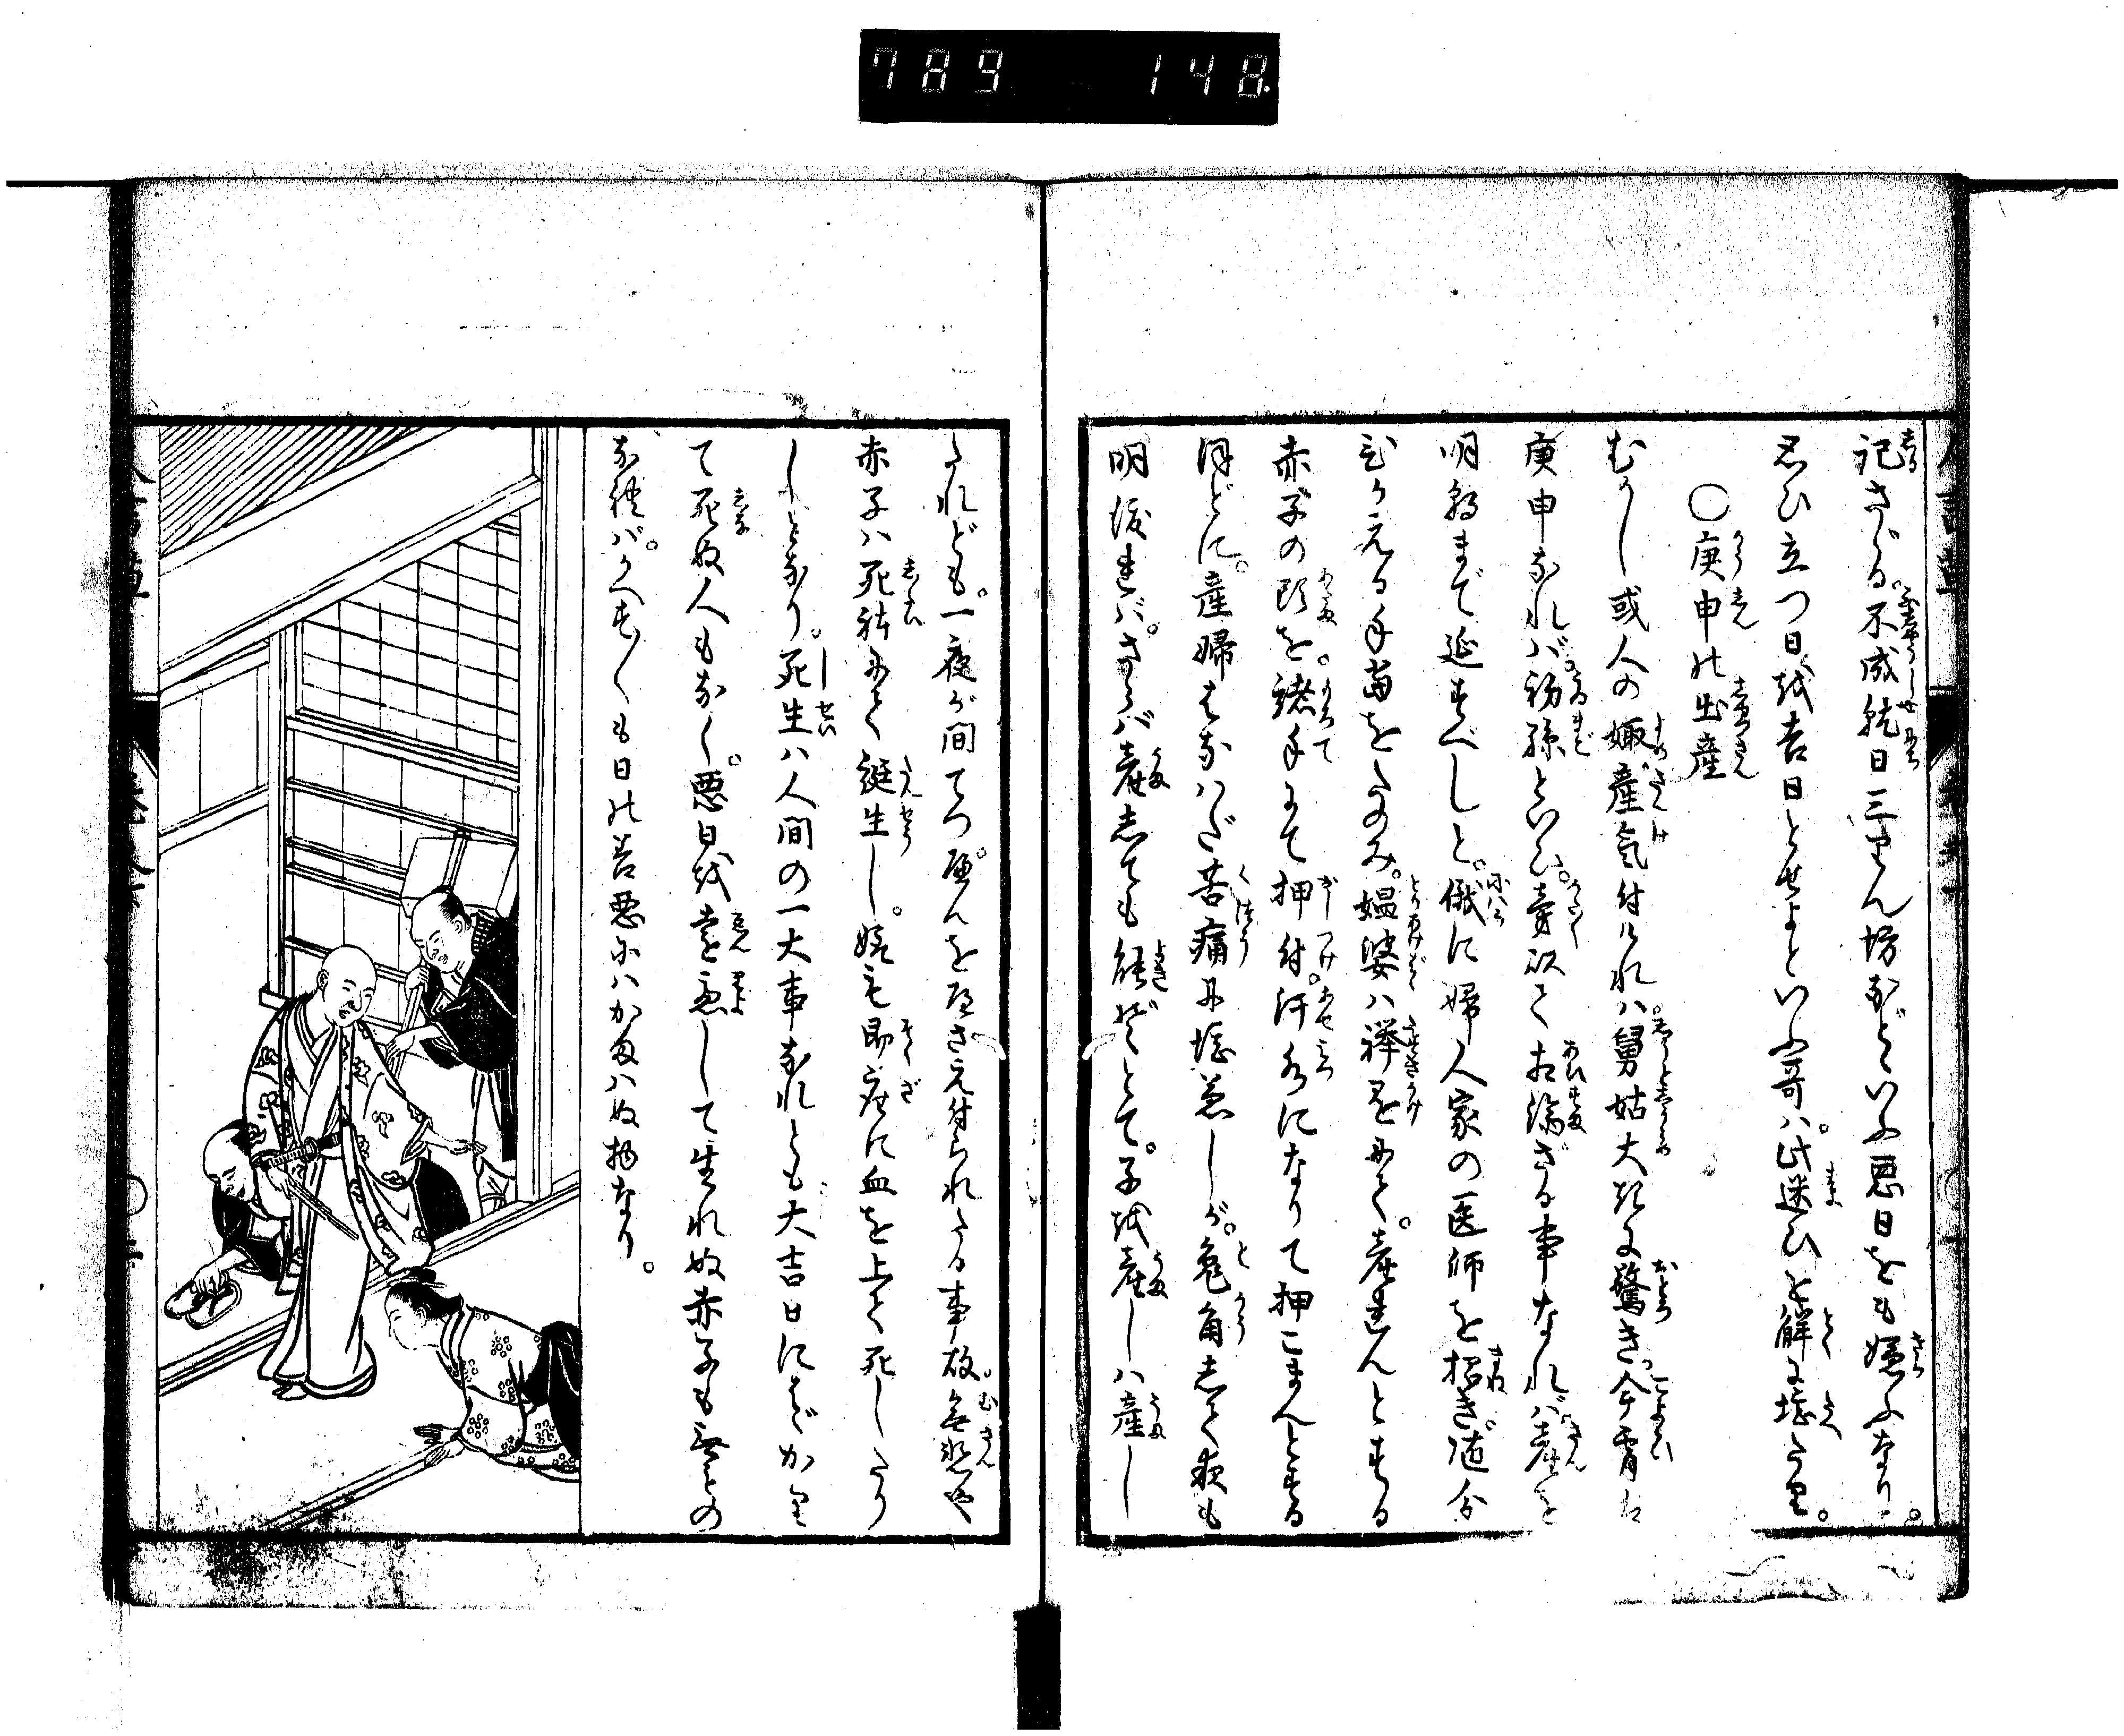 789 148
記さゞる。不成就日三りんぼうなどいふ悪日をも嫌ふなり。
思ひ立つ日を吉日とせよといふ哥ハ。此迷ひを解に堪たり。
〇庚申の出産
むかし或人の娵産気付けれハ。舅姑大きに驚き。今宵は
庚申なれバ初孫といひ。旁以て相済ざる事なれバ。産を
明朝まで延すべしと。俄に婦人家の医師を招き。随分
むつかえる手当をたのみ。媼婆ハ襷にて。産れんとする
赤子の頭を。諸手にて押付。汗水になりて押こまんとする
ほどに。産婦はなハだ苦痛に堪兼しが。兎角して夜も
明渡れバ。さらバ産しても能ぞとて。子を産しハ産し
たれども。一夜が間てつぺんをおさえ付られたる事故。無慙や
赤子ハ死体にて誕生し。娵も即座に血を上て死したり
しとなり。死生ハ人間の一大事なれとも大吉日にばかり
て死ぬ人もなく。悪日を遠慮して生れぬ赤子もなきもの
なれバ。かへす〲も日の善悪にハかまハぬ物なり。